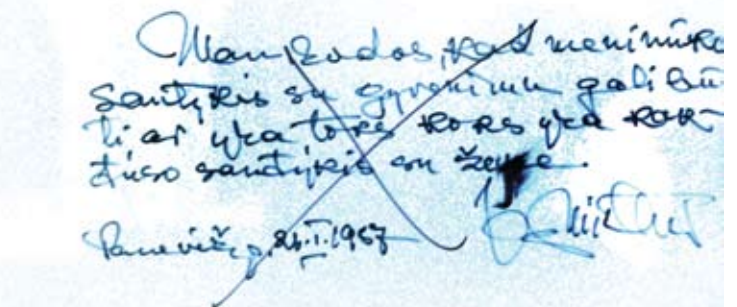 Man rodos, kad menininko
santykis su gyvenimu galėtų bū-
ti ar yra toks koks yra kak-
tuso santykis su žeme.
Panevėžy, I.1967